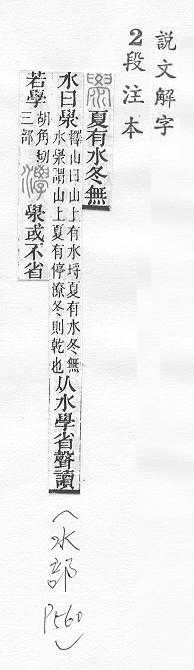 說文解字
2段注本
澩 夏有水冬無
水曰澩
釋山曰山上有水埒夏有水冬無
水澩謂山上夏有停潦冬則乾也
从水學省聲讀
若學
胡角切
三部
澩或不省
(水部 P560)